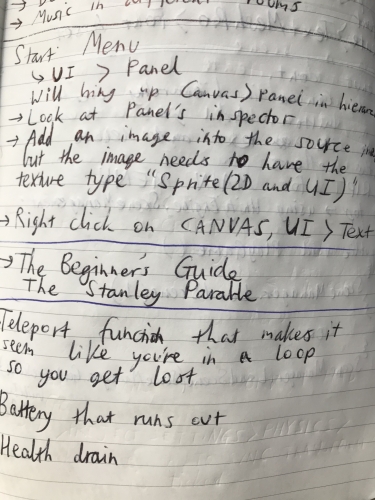 → Music in different rooms
Start Menu
↳ UI > Panel
Will bring up Canvas > Panel in
→ Look at Panel's inspector
→ Add an image into the source
but the image needs to have the
texture type "Sprite (2D and UI)"
→ Right click on CANVAS, UI > Text
→ The Beginner's Guide
The Stanley Parable
Teleport function that makes it
seem like you're in a loop
so you get lost
Battery that runs out
Health drain